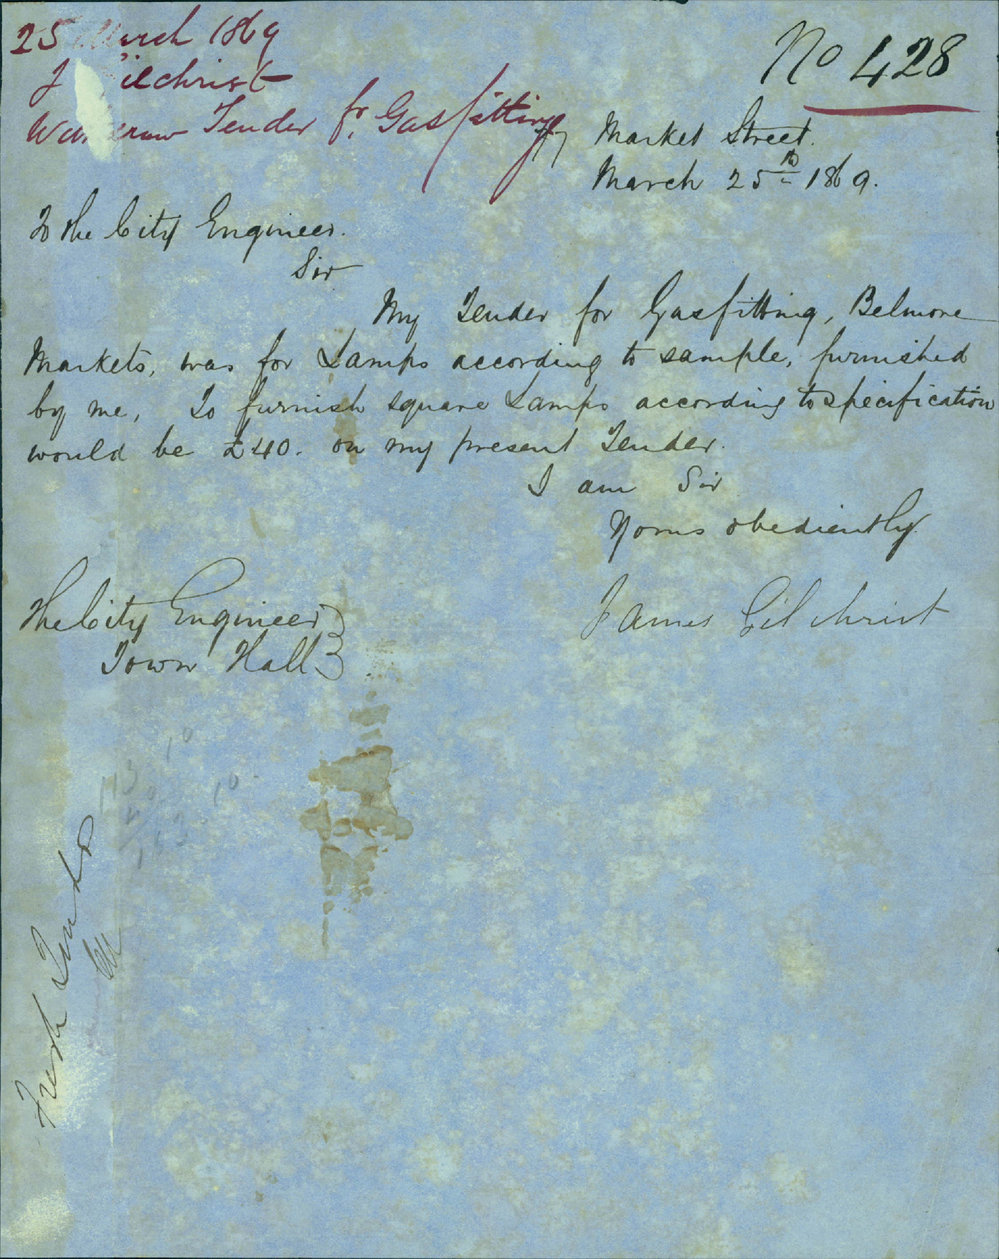 25 March 1869
J Gilchrist
Withdraw Tender fr. Gasfitting
No 428
Market Street.
March 25th 1869.
To the City Engineer.
Sir
My Tender for Gasfitting, Belmore
Markets, was for Lamps according to sample, furnished
by me, To furnish square Lamps according to specification
would be £40. on my present Tender.
I am Sir
Yours obediently
James Gilchrist
The City Engineer
Town Hall
10
113
10
163
Fresh Tender